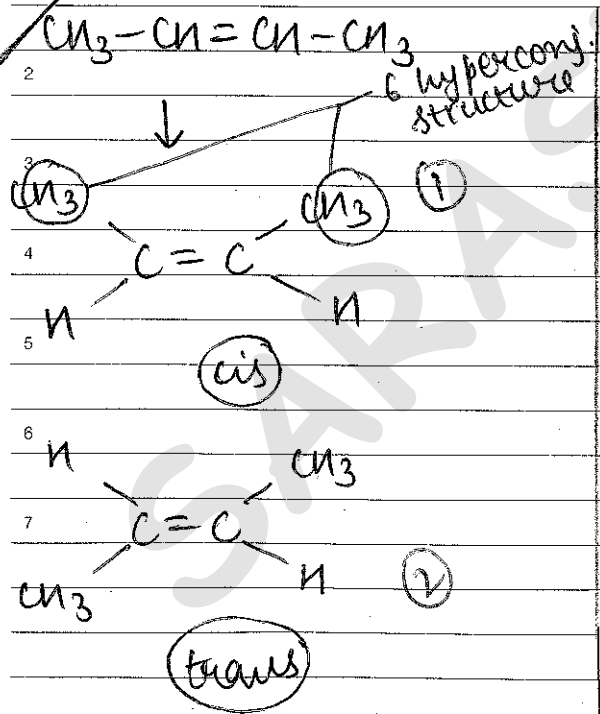 CH3-CH=CH-CH3
2
6 hyperconj.
structure
3
CH3 CH3 1
4 C=C
H H
5
cis
6
H CH3
7 C=C
CH3 H 2
trans
SARAS